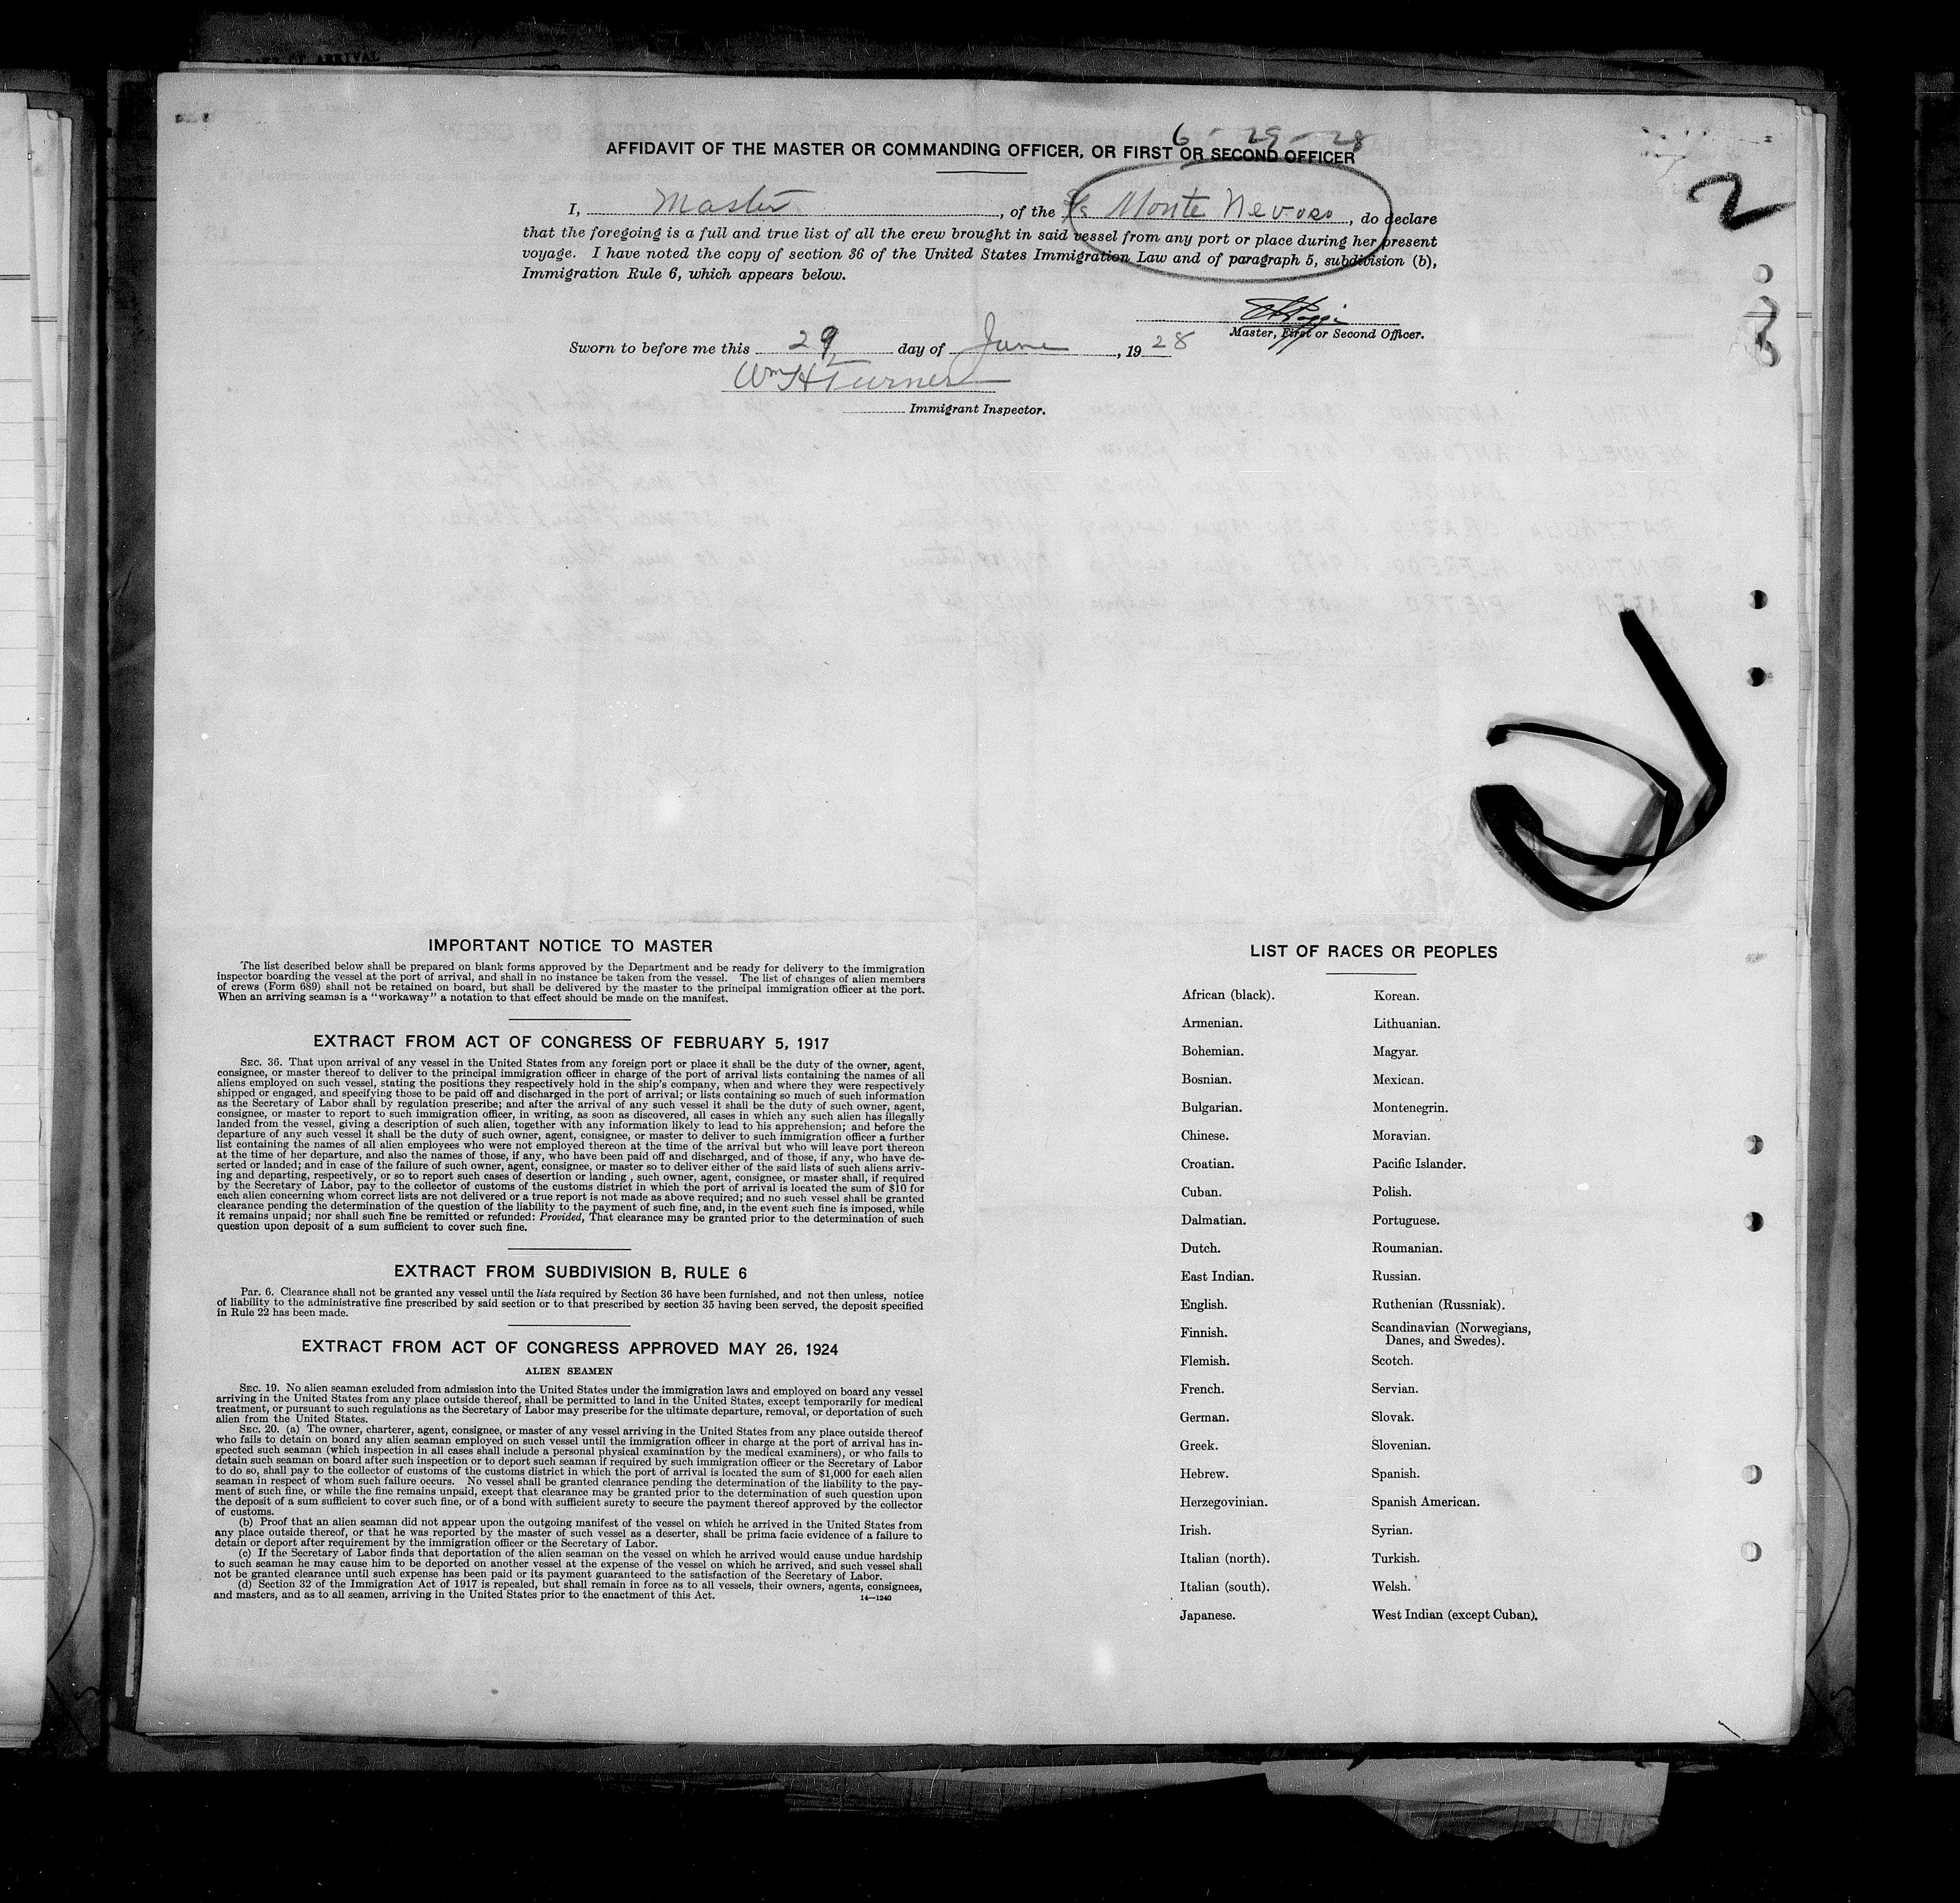 6 - 29 - 28
AFFIDAVIT OF THE MASTER OR COMMANDING OFFICER, OR FIRST OR SECOND OFFICER
2
I, Master, of the S/s Monte Nevoso, do declare
that the foregoing is a full and true list of all the crew brought in said vessel from any port or place during her present
voyage. I have noted the copy of section 36 of the United States Immigration Law and of paragraph 5, subdivision (b),
Immigration Rule 6, which appears below.
Master, First or Second Officer.
Sworn to before me this 29 day of June, 1928
Wm H Turner
Immigrant Inspector.
IMPORTANT NOTICE TO MASTER
The list described below shall be prepared on blank forms approved by the Department and be ready for delivery to the immigration
inspector boarding the vessel at the port of arrival, and shall in no instance be taken from the vessel. The list of changes of alien members
of crews (Form 689) shall not be retained on board, but shall be delivered by the master to the principal immigration officer at the port.
When an arriving seaman is a "workaway" a notation to that effect should be made on the manifest.
EXTRACT FROM ACT OF CONGRESS OF FEBRUARY 5, 1917
SEC. 36. That upon arrival of any vessel in the United States from any foreign port or place it shall be the duty of the owner, agent,
consignee, or master thereof to deliver to the principal immigration officer in charge of the port of arrival lists containing the names of all
aliens employed on such vessel, stating the positions they respectively hold in the ship's company, when and where they were respectively
shipped or engaged, and specifying those to be paid off and discharged in the port of arrival; or lists containing so much of such information
as the Secretary of Labor shall by regulation prescribe; and after the arrival of any such vessel it shall be the duty of such owner, agent,
consignee, or master to report to such immigration officer, in writing, as soon as discovered, all cases in which any such alien has illegally
landed from the vessel, giving a description of such alien, together with any information likely to lead to his apprehension; and before the
departure of any such vessel it shall be the duty of such owner, agent, consignee, or master to deliver to such immigration officer a further
list containing the names of all alien employees who were not employed thereon at the time of the arrival but who will leave port thereon
at the time of her departure, and also the names of those, if any, who have been paid off and discharged, and of those, if any, who have de-
serted or landed; and in case of the failure of such owner, agent, consignee, or master so to deliver either of the said lists of such aliens arriv-
ing and departing, respectively, or so to report such cases of desertion or landing , such owner, agent, consignee, or master shall, if required
by the Secretary of Labor, pay to the collector of customs of the customs district in which the port of arrival is located the sum of $10 for
each alien concerning whom correct lists are not delivered or a true report is not made as above required; and no such vessel shall be granted
clearance pending the determination of the question of the liability to the payment of such fine, and, in the event such fine is imposed, while
it remains unpaid; nor shall such fine be remitted or refunded: Provided, That clearance may be granted prior to the determination of such
question upon deposit of a sum sufficient to cover such fine.
EXTRACT FROM SUBDIVISION B, RULE 6
Par. 6. Clearance shall not be granted any vessel until the lists required by Section 36 have been furnished, and not then unless, notice
of liability to the administrative fine prescribed by said section or to that prescribed by section 35 having been served, the deposit specified
in Rule 22 has been made.
EXTRACT FROM ACT OF CONGRESS APPROVED MAY 26, 1924
ALIEN SEAMEN
SEC. 19. No alien seaman excluded from admission into the United States under the immigration laws and employed on board any vessel
arriving in the United States from any place outside thereof, shall be permitted to land in the United States, except temporarily for medical
treatment, or pursuant to such regulations as the Secretary of Labor may prescribe for the ultimate departure, removal, or deportation of such
alien from the United States.
SEC. 20. (a) The owner, charterer, agent, consignee, or master of any vessel arriving in the United States from any place outside thereof
who fails to detain on board any alien seaman employed on such vessel until the immigration officer in charge at the port of arrival has in-
spected such seaman (which inspection in all cases shall include a personal physical examination by the medical examiners), or who fails to
detain such seaman on board after such inspection or to deport such seaman if required by such immigration officer or the Secretary of Labor
to do so, shall pay to the collector of customs of the customs district in which the port of arrival is located the sum of $1,000 for each alien
seaman in respect of whom such failure occurs. No vessel shall be granted clearance pending the determination of the liability to the pay-
ment of such fine, or while the fine remains unpaid, except that clearance may be granted prior to the determination of such question upon
the deposit of a sum sufficient to cover such fine, or of a bond with sufficient surety to secure the payment thereof approved by the collector
of customs.
(b) Proof that an alien seaman did not appear upon the outgoing manifest of the vessel on which he arrived in the United States from
any place outside thereof, or that he was reported by the master of such vessel as a deserter, shall be prima facie evidence of a failure to
detain or deport after requirement by the immigration officer or the Secretary of Labor.
(c) If the Secretary of Labor finds that deportation of the alien seaman on the vessel on which he arrived would cause undue hardship
to such seaman he may cause him to be deported on another vessel at the expense of the vessel on which he arrived, and such vessel shall
not be granted clearance until such expense has been paid or its payment guaranteed to the satisfaction of the Secretary of Labor.
(d) Section 32 of the Immigration Act of 1917 is repealed, but shall remain in force as to all vessels, their owners, agents, consignees,
and masters, and as to all seamen, arriving in the United States prior to the enactment of this Act.
14—1240
LIST OF RACES OR PEOPLES
African (black). Korean.
Armenian. Lithuanian.
Bohemian. Magyar.
Bosnian. Mexican.
Bulgarian. Montenegrin.
Chinese. Moravian.
Croatian. Pacific Islander.
Cuban. Polish.
Dalmatian. Portuguese.
Dutch. Roumanian.
East Indian. Russian.
English. Ruthenian (Russniak).
Finnish. Scandinavian (Norwegians,
Danes, and Swedes).
Flemish. Scotch.
French. Servian.
German. Slovak.
Greek. Slovenian.
Hebrew. Spanish.
Herzegovinian. Spanish American.
Irish. Syrian.
Italian (north). Turkish.
Italian (south). Welsh.
Japanese. West Indian (except Cuban).